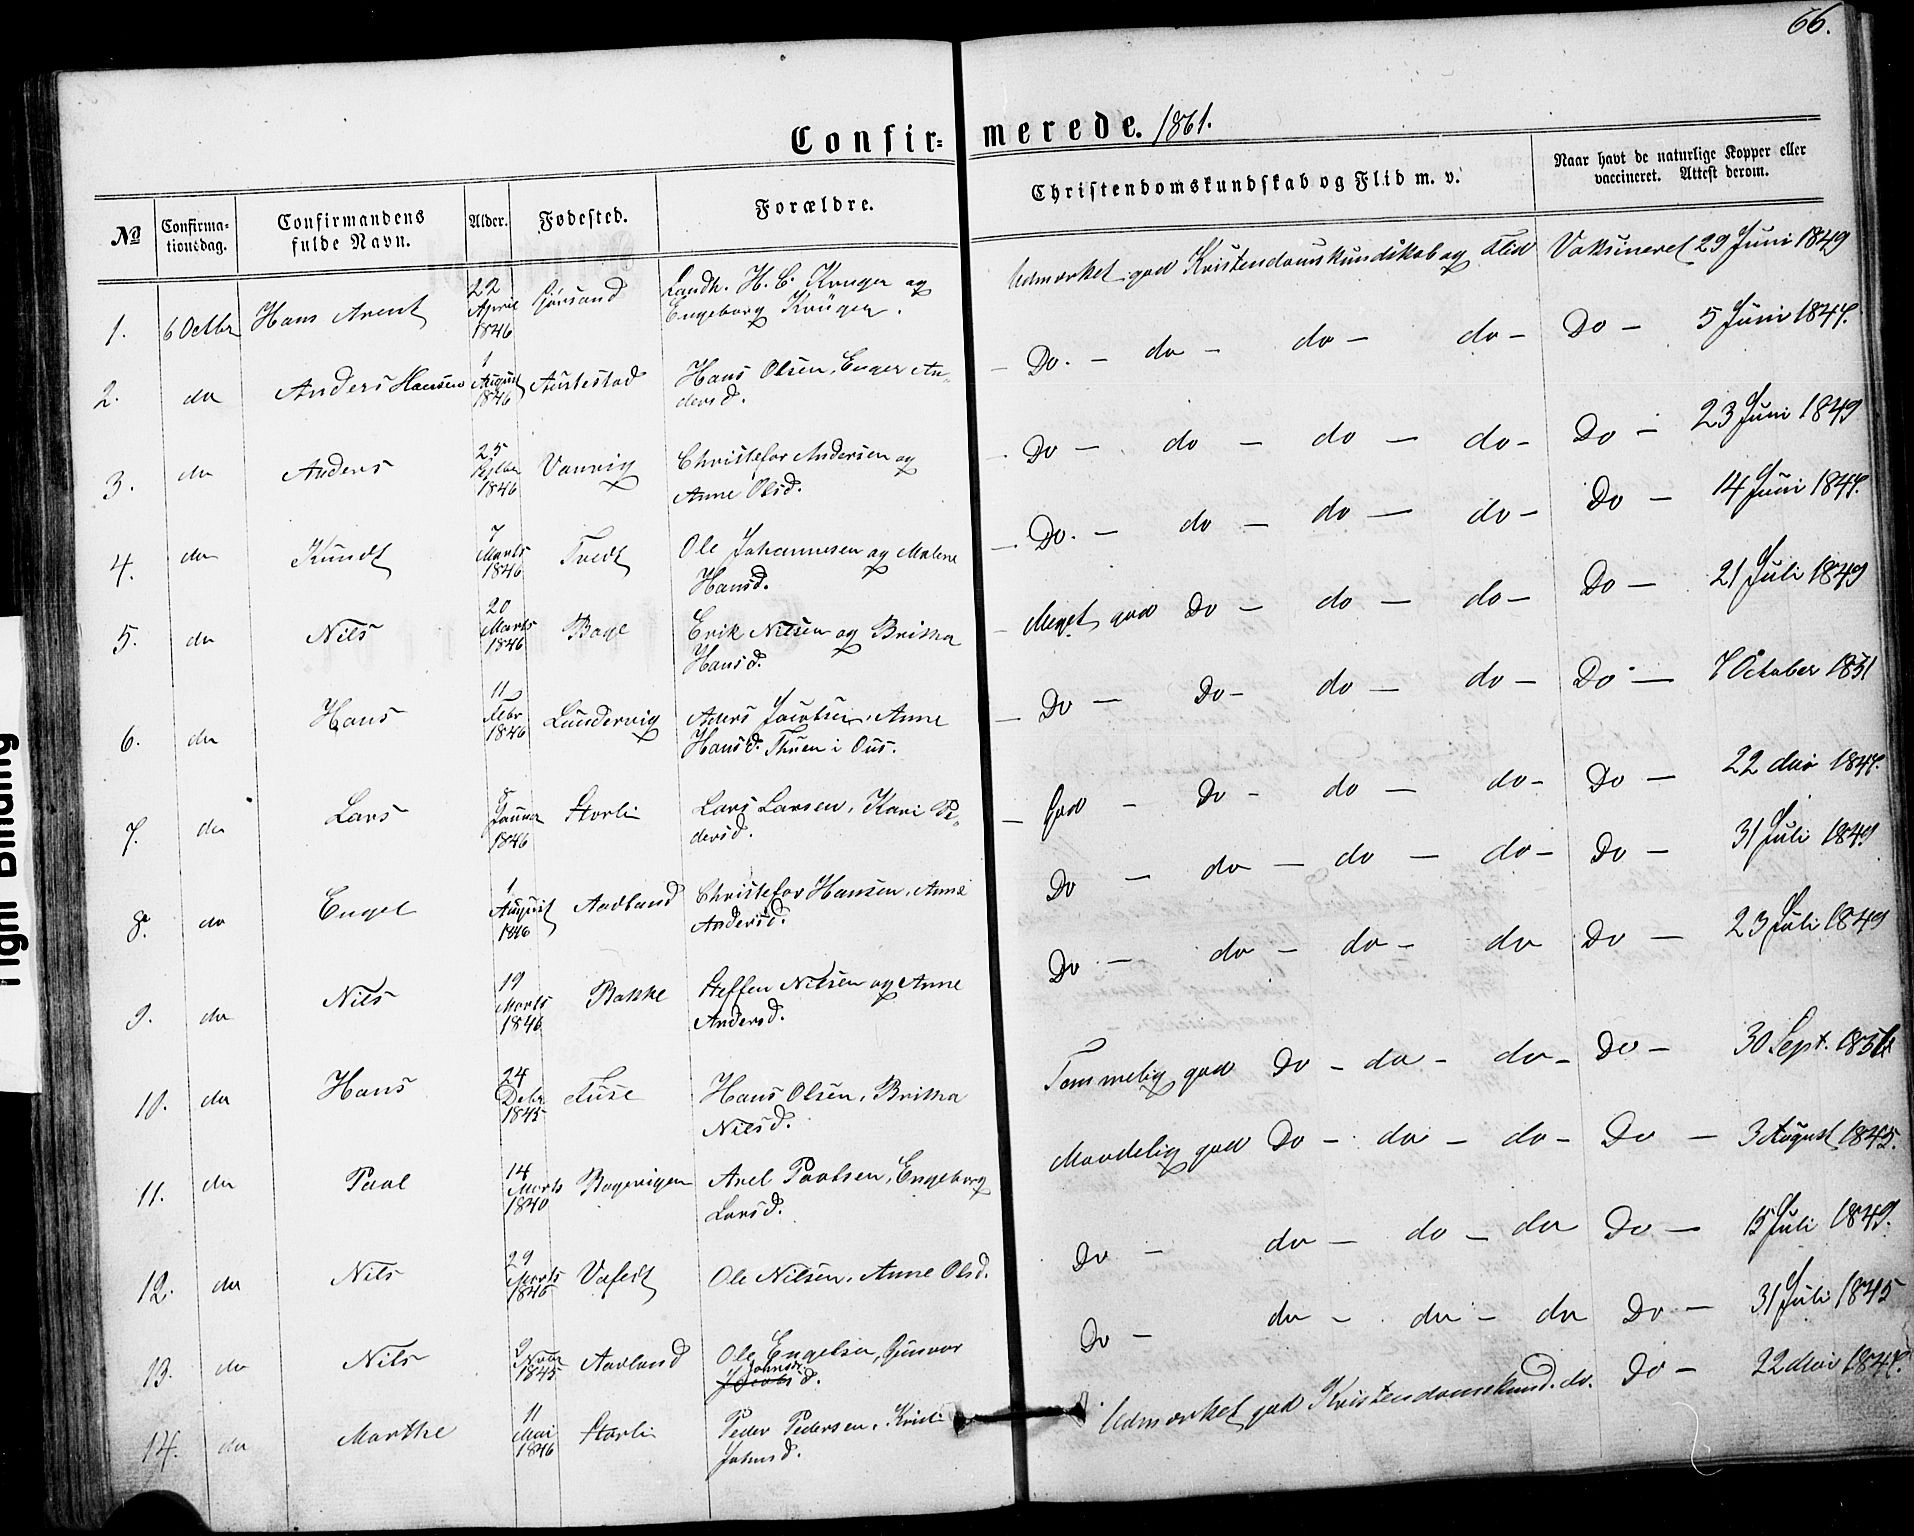 66.
Confir=merede. 1861.
No
Confirma-
tionsdag.
Confirmandens
fulde Navn.
Alder.
Fødested.
Forældre.
Christendomskundskab og Flid m. v.
Naar havt de naturlige Kopper eller
vaccineret. Attest derom.
1. 6 Octbr Hans Arent 22 April 1846 Gjøsand Landh. H. C. Kruger og
Engeborg Krüger.
Udmærket god Kristendomskundskab og Flid Vaksineret 29 Juni 1849
2. do Anders Hansen 1 August 1846 Austestad Hans Olsen, Enger An-
dersd.
Do. - do - do - do - Do - 5 Juni 1847.
3. do Anders 25 1846 Vanvig Christefor Andersen og
Anne Olsd.
Do - do - do - do - Do - 23 Juni 1849
4. do Kundt 7 Marts 1846 Tvedt Ole Johannesen og Malene
Hansd.
Do. - do - do - do - Do - 14 Juni 1847.
5. do Nils 20 Marts 1846 Boge Erik Nilsen og Britha
Hansd.
Meget god Do - do - do - Do - 21 Juli 1849
6. do Hans 11 Febr 1846 Lundervig Aders Jacobsen, Anne
Hansd. Thuen i Ous.
Do - Do - do - do - Do - 7 October 1851
7. do Lars 8 Januar 1846 Storli Lars Larsen, Kari Pe-
dersd.
God - Do - do - do - Do - 22 1847.
8. do Engel 1 August 1846 Aadland Christefor Hansen, Anne
Andersd.
Do - do - do - do - Do - 31 Juli 1849
9. do Nils 19 Marts 1846 Bakke Steffen Nilsen og Anne
Andersd.
Do - do - do - do Do - 23 Juli 1849
10. do Hans 24 Debr 1845 Fuse Hans Olsen, Britha
Nilsd.
Tommelig god Do - do - do - Do - 30 Sept.
11. do Paul 14 Marts 1846 Bogevigen Axel Paulsen, Engeborg
Larsd.
Maadelig god Do - do - do - Do - 3 August 1845.
12. do Nils 29 Marts 1846 Ole Nilsen, Anne Olsd.
Do - do - do - do Do - 15 Juli 1849.
13. do Nils 9 Novbr 1845 Aadland Ole Engelsen, Gunvor
Johnsd.
Do - do - do - do Do - 31 Juli 1845
14. do Marthe 11 Mai 1846 Storli Peder Pedersen, Kristi
Johnsd.
Udmærket god Kristendomskund. do. Do - 22 1847.
Tight Binding